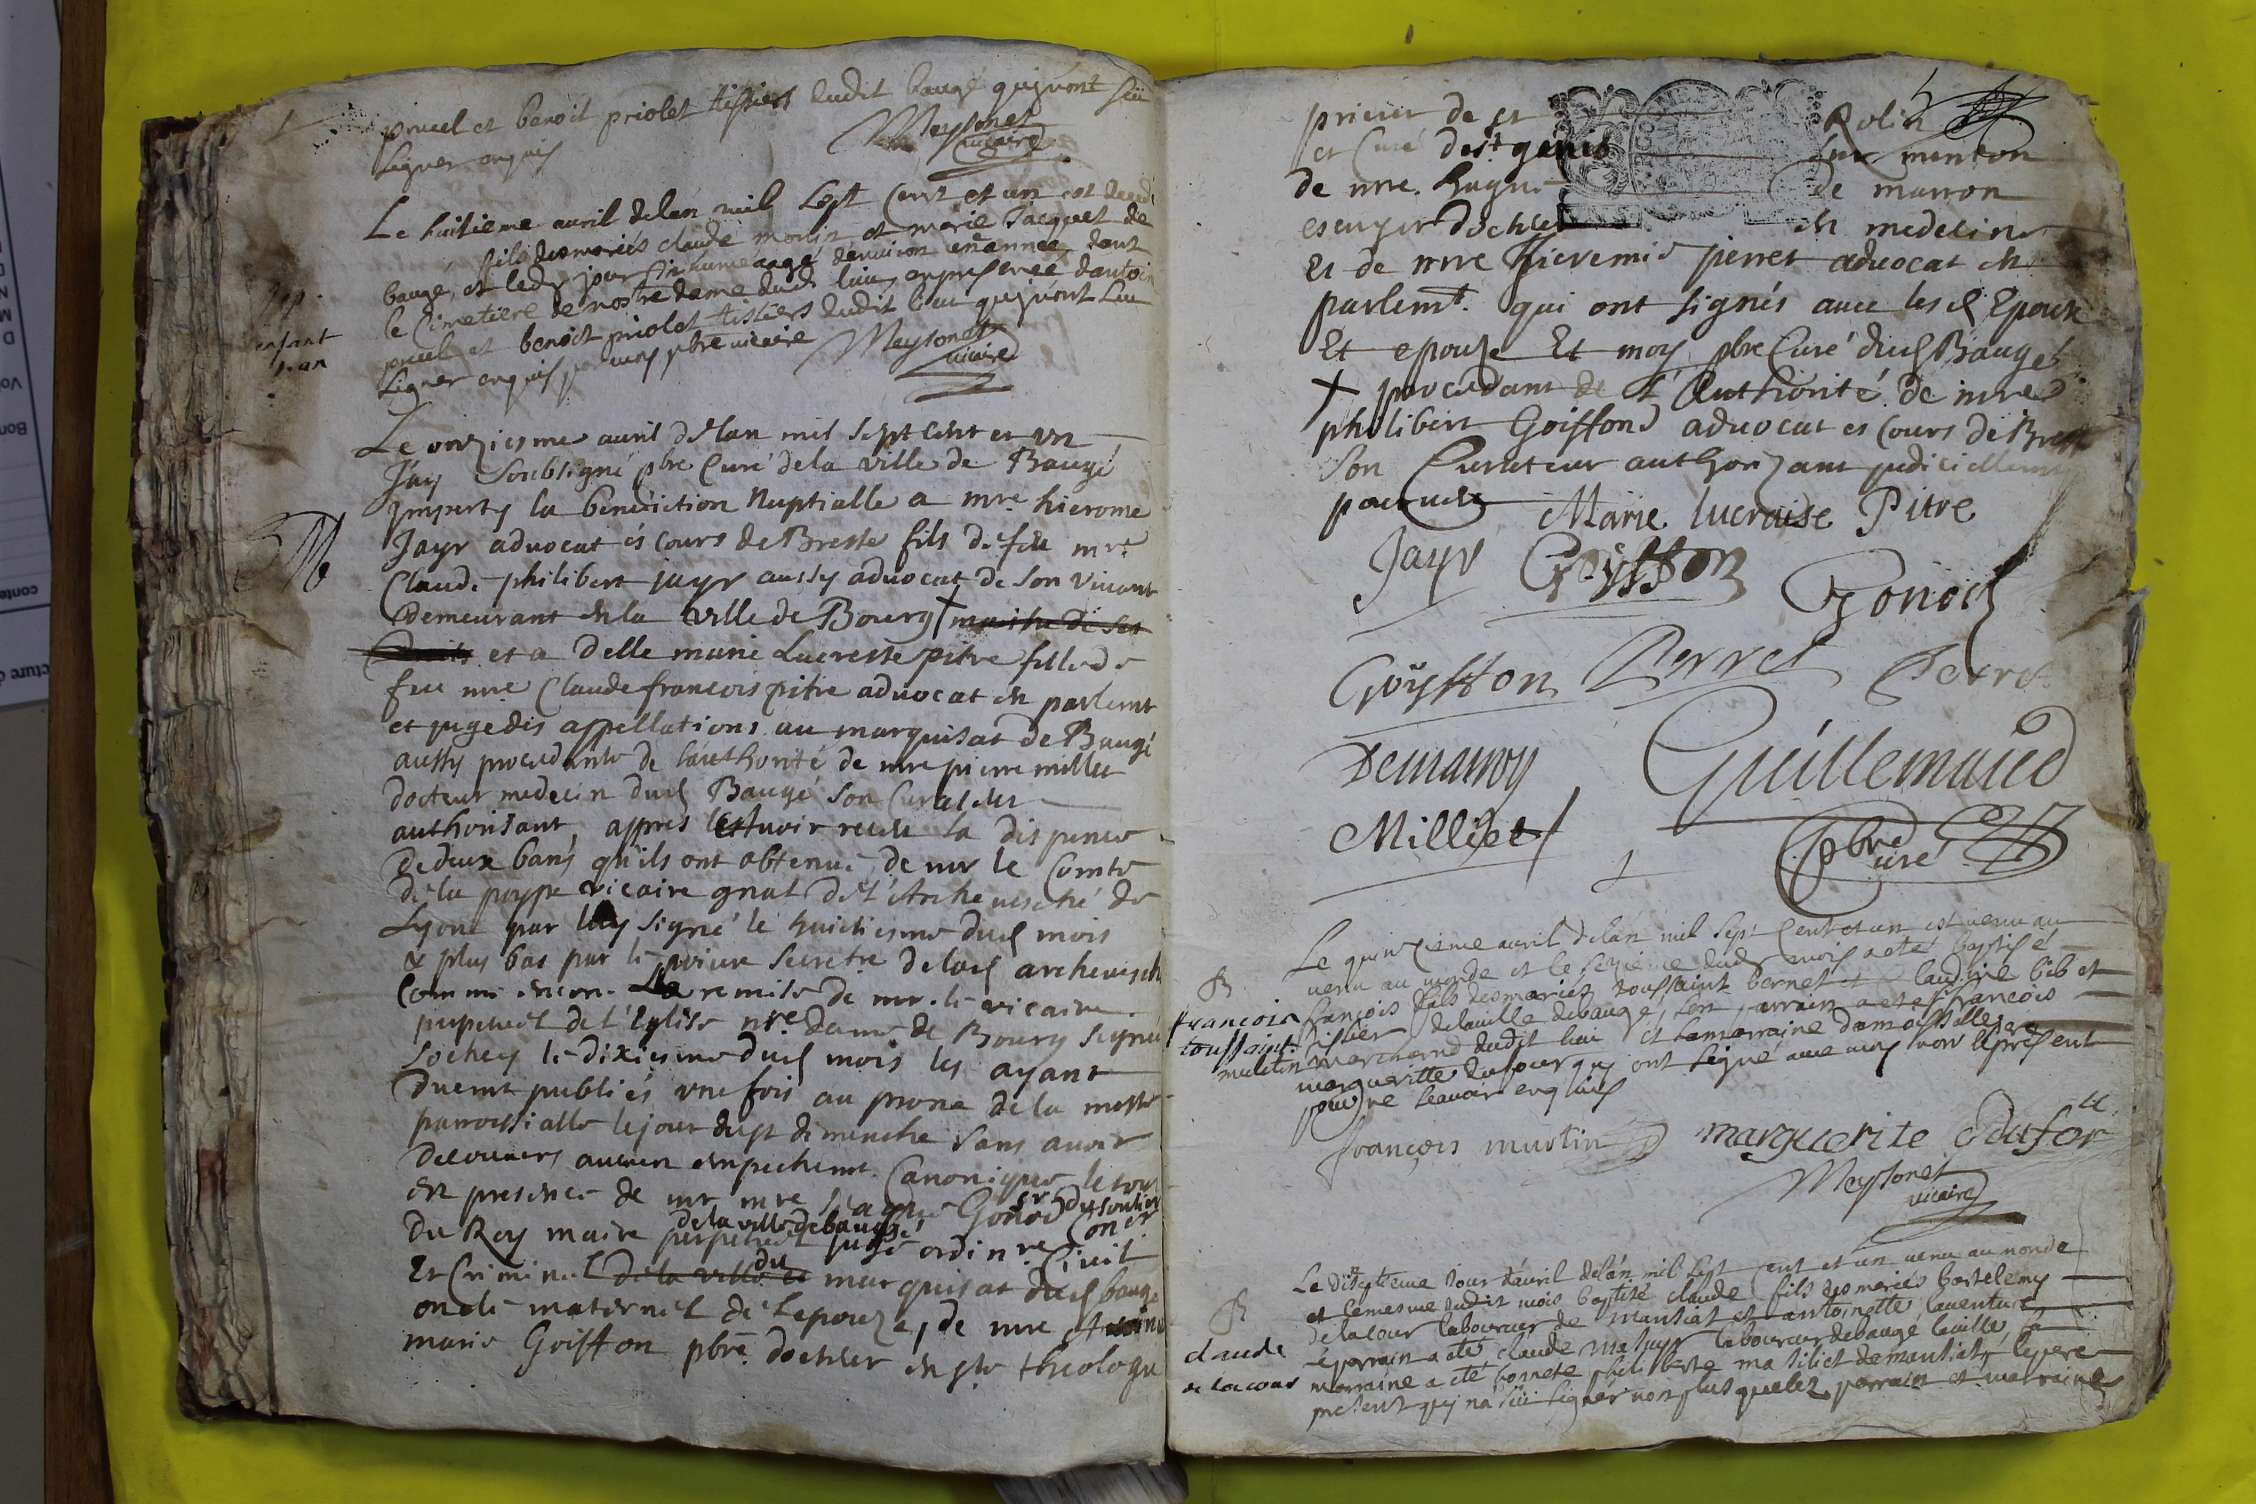 pruel et benoit priolet tissiers dudit baugé quj nont sceu
signer enquis
Meysonet
vicaire
Le huitieme auril de lan mil sept cent et un est decedé
fils des mariés claude morlin et marie Jacquet de
baugé, et led jour inhume aagé denuiron une année dans
le Cimetiere de nostre dame dud lieu, en presence dantoin
pruel et benoit priolet tissiers dudit lieu quj nont sceu
signer enquis par moy pbre vicaire
Meysonet
vicaire
enfant
Le onziesme auril de lan mil sept cent et vn
J'ay soubsigné pbre Curé de la ville de Baugé
Imparty la benediction Nuptialle a mre hierome
Jayr aduocat és cours de Bresse fils de feu mre
Claude philibert jayr aussy aduocat de son viuant
Demeurant en la ville de Bourg + maistre de ses
droits et a Delle marie Lucresse pitre fille de
feu mre Claude francois pitre aduocat en parlemt
et juge des appellations au marquisat de Baugé
aussy procedante de l'authorité de mre pierre milliet
docteur medecin dud Baugé son Curateur
authorisant, appres avoir receu la dispence
de deux bans qu'ils ont obtenue de mr le Comte
de la poype vicaire gnal de l'Archeuesché de
Lyon par luy signé le huictiesme dud mois
& plus bas par le prieur Secretre de lad archeuesch
Comme encore La remise de mr. le vicaire
perpetuel de l'Eglise nre dame de Bourg signé
Sochey le dixiesme dud mois les ayant
Duemt publiés vne fois au prone de la messe
parroissialle le jour dhyer dimenche sans auoir
decouuers aucun empechemt. Canonique le tout
en presence de mr mre Gonod Conser
Du Roy maire perpetuel de la ville de baugé juge ordinre Ciuil
Et Criminel de la ville et du marquisat dud baugé
oncle maternel de l'epouze, de mre
marie Goiffon pbre docteur en ste theologie
M
prieur de st Rolin
et Curé de st genis sur menton
de mre. hugue de marron
escuyer docteur en medecine
Et de mre hieremie perret aduocat en
parlemt. qui ont signés auec lesd Epoux
Et epouze Et moy pbre Curé dud Baugé
+ procedant de l'Authorité de mre
philibert Goiffond aduocat es Cours de Bresse
son Curateur authorizant judiciellement
pourueu
Marie lucraise Pitre
Jayr Goyffon
Gonod
Goyffon Perret Perret
Demarron Guillemaud
Milliet pbre Curé
Le quinzieme auril de lan mil sept cent et un est venu au
venu au monde et le sezieme dud mois a eté baptisé
françois fils des mariez toussaint bernet et Claudine bib et
tissier de la ville de baugé, son parrain a eté sr francois
marchand dudit lieu et la marraine damoiselle
margueritte dufour qui ont signé auec moy non le pere present
pour ne scauoir enquis
francois murtin marguerite dufor
Meysonet
vicaire
B
francois
toussaint
Le dixseptieme jour dauril de lan mil sept cent et un venu au monde
et le mesme dudit mois baptisé claude fils des mariés bartelemy
delacour laboureur de mansiat et antoinette lauenture
le parrain a eté claude mathuyr laboureur de baugé la ville la
marraine a eté honnete philiberte ma tiliet de mansiat, le pere
present quj na sceu signer non plus que les parrain et marraine
B
claude
de lacour